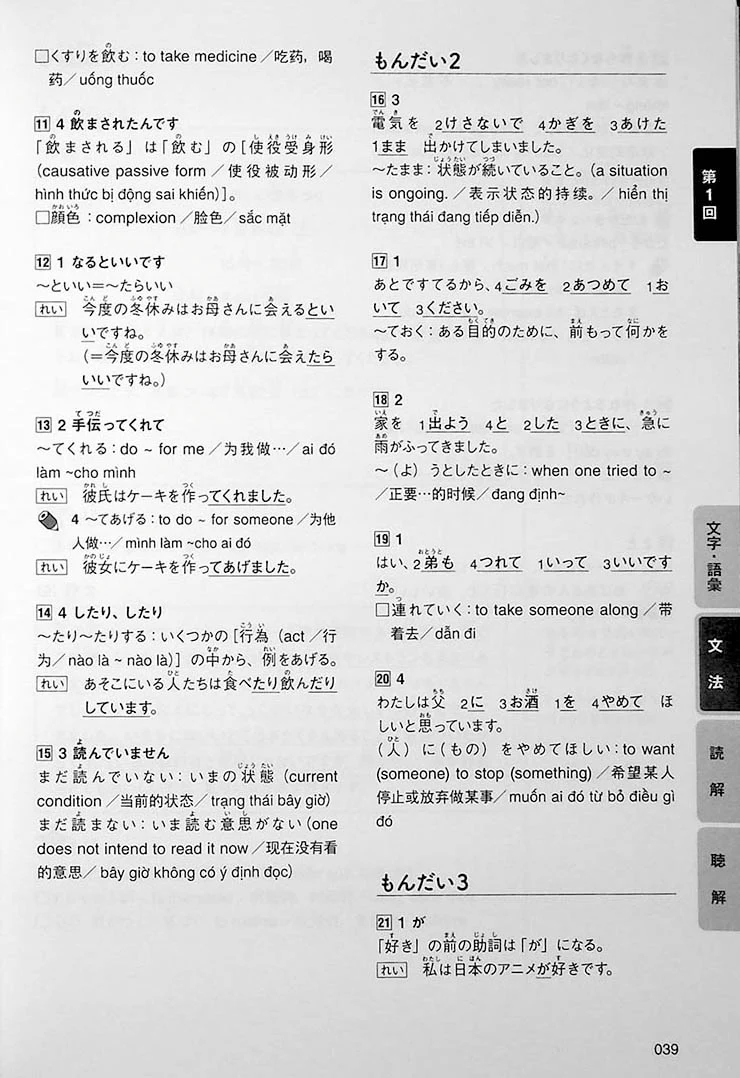 □くすりを飲む：to take medicine／吃药，喝
药／uống thuốc
11 4 飲まされたんです
「飲まされる」は「飲む」の［使役受身形
（causative passive form／使役被动形／
hình thức bị động sai khiến）］。
□顔色：complexion／脸色／sắc mặt
12 1 なるといいです
～といい＝～たらいい
れい 今度の冬休みはお母さんに会えるとい
いですね。
（＝今度の冬休みはお母さんに会えたら
いいですね。）
13 2 手伝ってくれて
～てくれる：do ~ for me／为我做…／ai đó
làm ~cho mình
れい 彼氏はケーキを作ってくれました。
4 ～てあげる：to do ~ for someone／为他
人做…／mình làm ~cho ai đó
れい 彼女にケーキを作ってあげました。
14 4 したり、したり
～たり～たりする：いくつかの［行為（act／行
为／nào là ~ nào là）］の中から、例をあげる。
れい あそこにいる人たちは食べたり飲んだり
しています。
15 3 読んでいません
まだ読んでいない：いまの状態（current
condition／当前的状态／trạng thái bây giờ）
まだ読まない：いま読む意思がない（one
does not intend to read it now／现在没有看
的意思／bây giờ không có ý định đọc）
もんだい2
16 3
電気を 2けさないで 4かぎを 3あけた
1まま 出かけてしまいました。
～たまま：状態が続いていること。（a situation
is ongoing.／表示状态的持续。／hiển thị
trạng thái đang tiếp diễn.）
17 1
あとですてるから、4ごみを 2あつめて 1お
いて 3ください。
～ておく：ある目的のために、前もって何かを
する。
18 2
家を 1出よう 4と 2した 3ときに、急に
雨がふってきました。
～（よ）うとしたときに：when one tried to ~
／正要…的时候／đang định~
19 1
はい、2弟も 4つれて 1いって 3いいです
か。
□連れていく：to take someone along／带
着去／dẫn đi
20 4
わたしは父 2に 3お酒 1を 4やめて ほ
しいと思っています。
（人）に（もの）をやめてほしい：to want
(someone) to stop (something)／希望某人
停止或放弃做某事／muốn ai đó từ bỏ điều gì
đó
もんだい3
21 1 が
「好き」の前の助詞は「が」になる。
れい 私は日本のアニメが好きです。
第1回
文字・語彙
文法
読解
聴解
039